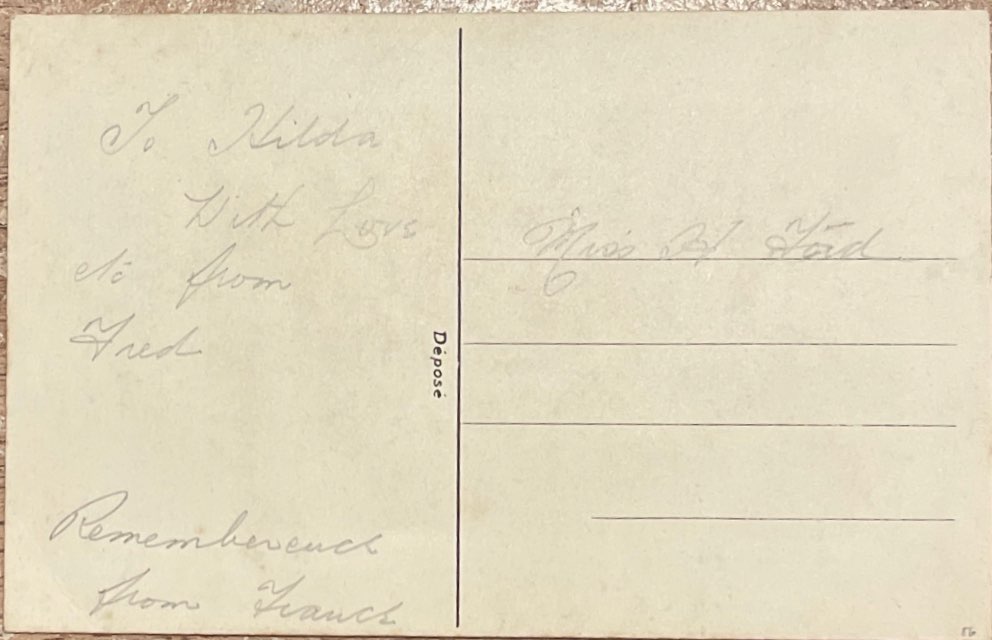 To Hilda
With Love
etc from
Fred
Rememberence
from France
Déposé
Miss H Ford